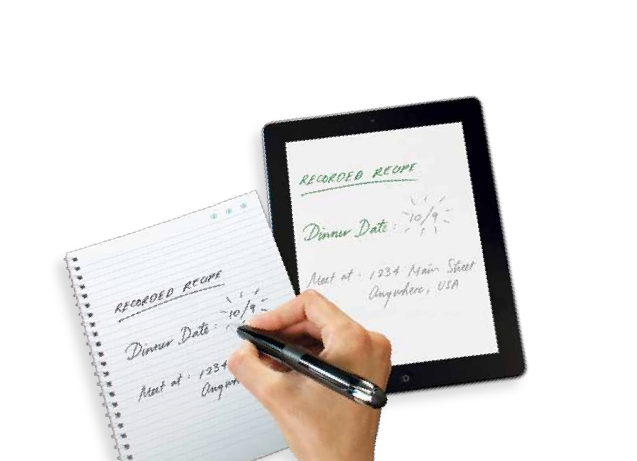 RECORDED RECIPE
Dinner Date: 10/9
Meet at: 1234
Anyw
RECORDED RECIPE
Dinner Date: 10/9
Meet at: 1234 Main Street
Anywhere, USA